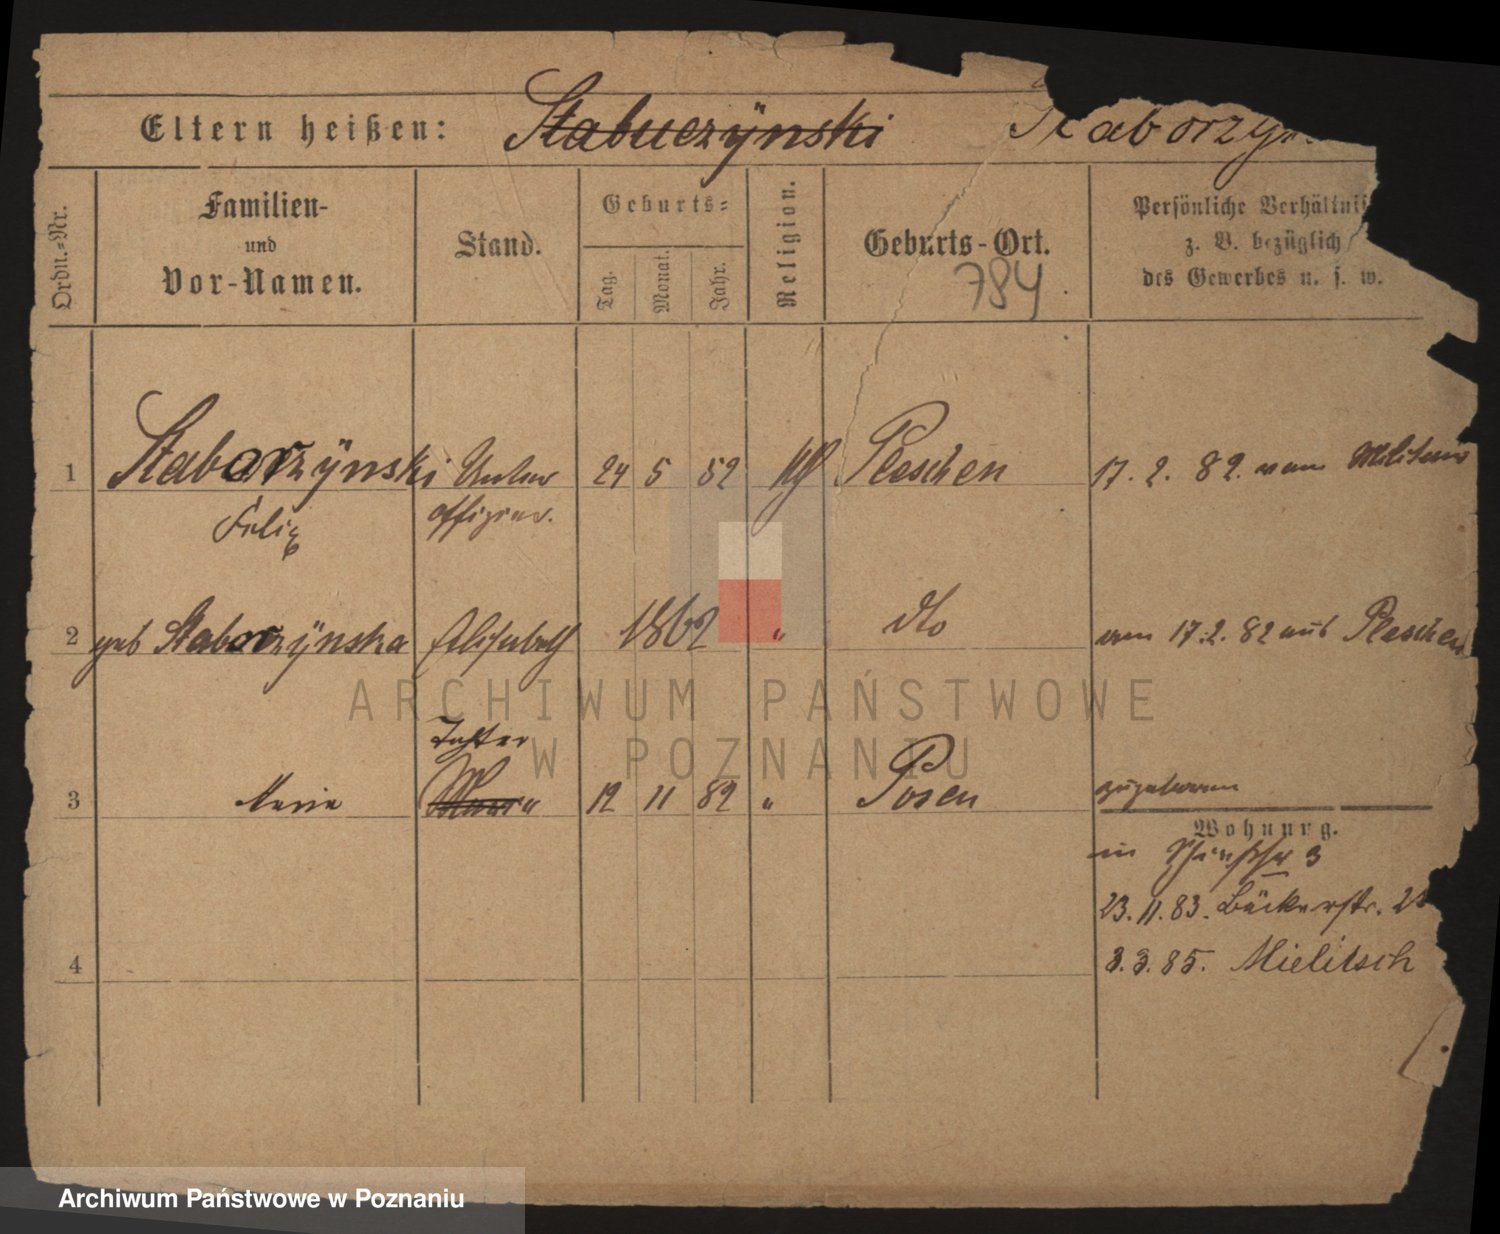 Eltern heißen: Stabuczÿnski Staborzÿn
Ordn.-Nr.
Familien-
und
Vor-Namen.
Stand.
Geburts-
Tag.
Monat.
Jahr.
Religion.
Geburts-Ort.
784
Persönliche Verhältnis
z. B. bezüglich
des Gewerbes u. s. w.
1 Staborzÿnski Unter 24 5 52 kth Pleschen 17. 2. 82. vom Militair
Felix offizier.
2 geb Staborzÿnska Elisabeth 1862 " dto am 17.2.82 aus Pleschen
Tochter
3 Marie " 12 11 82 " Posen
Wohnung.
3
23.11.83. Bäckerstr. 2
3.3.85. Mielitsch
4
ARCHIWUM PAŃSTWOWE
W POZNANIU
Archiwum Państwowe w Poznaniu